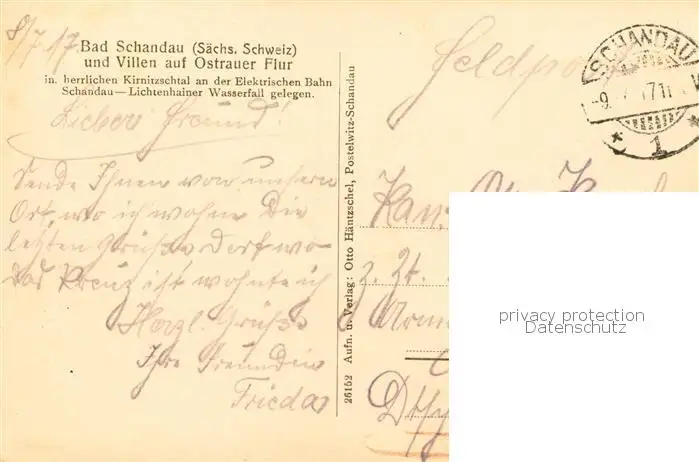 8/7.17.
Bad Schandau (Sächs. Schweiz)
und Villen auf Ostrauer Flur
in herrlichen Kirnitzschtal an der Elektrischen Bahn
Schandau—Lichtenhainer Wasserfall gelegen.
Lieber Freund!
Sende Ihnen von unserm
Ort, wo ich wohne Die
letzten Grüße Dort wo
das Kreuz ist wohnte ich
Herzl. Grüße
Ihre Freundin
Frieda
26152 Aufn. u. Verlag: Otto Häntzschel, Postelwitz-Schandau
Feldpost
SCHANDAU
1
Kan.
Otto
z. Zt.
privacy protection
Datenschutz